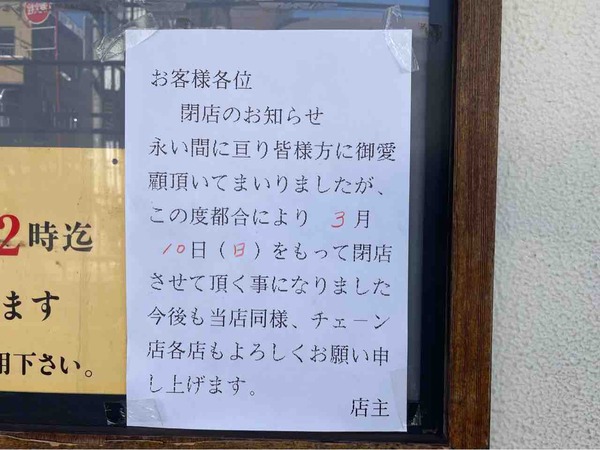 お客様各位
閉店のお知らせ
永い間に亘り皆様方に御愛
顧頂いてまいりましたが、
この度都合により 3月
10日(日)をもって閉店
させて頂く事になりました
今後も当店同様、チェーン
店各店もよろしくお願い申
し上げます。
店主
2時迄
ます
用下さい。